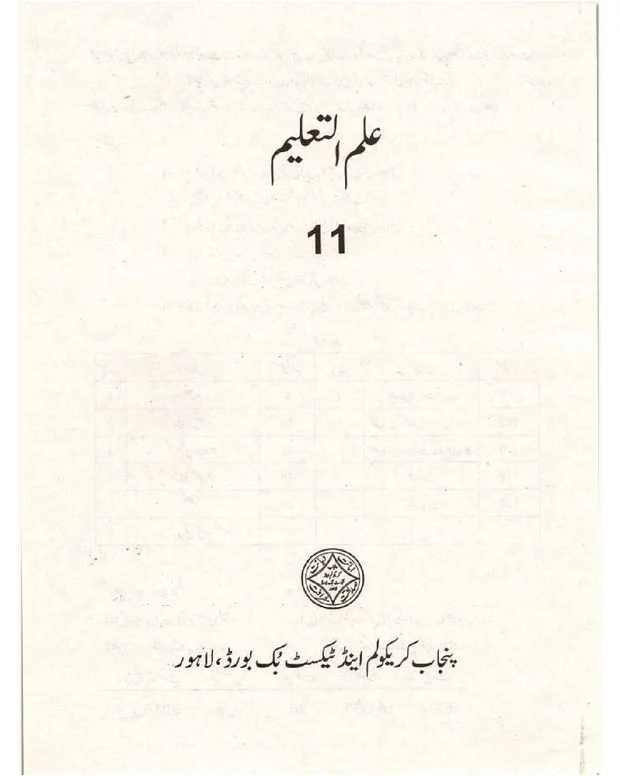 علم التعلیم
11
پنجاب کریکولم اینڈ ٹیکسٹ بُک بورڈ، لاہور